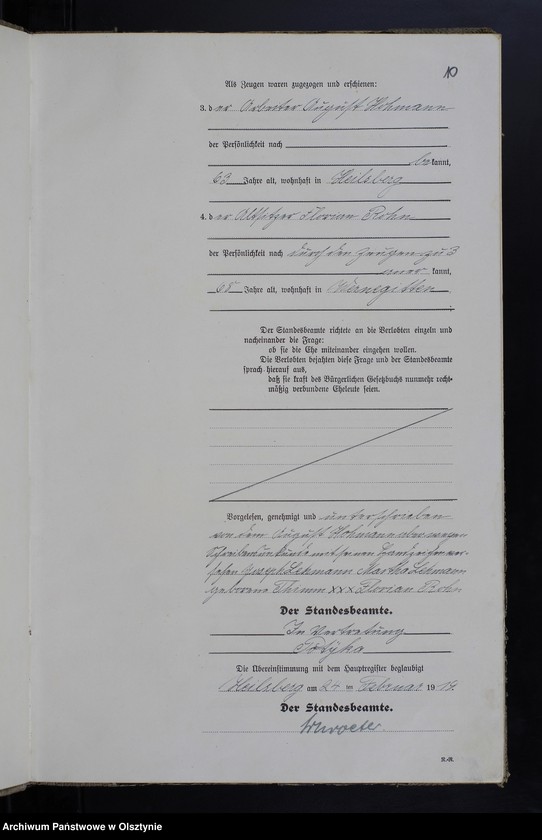 10
Als Zeugen waren zugezogen und erschienen:
3. der Arbeiter August Hohmann
der Persönlichkeit nach
bekannt,
63 Jahre alt, wohnhaft in Heilsberg
4. der Altsitzer Florian Rohn
der Persönlichkeit nach durch den Zeugen zu 3
aner kannt,
68 Jahre alt, wohnhaft in Wernegitten
Der Standesbeamte richtete an die Verlobten einzeln und
nacheinander die Frage:
ob sie die Ehe miteinander eingehen wollen.
Die Verlobten bejahten diese Frage und der Standesbeamte
sprach hierauf aus,
daß sie kraft des Bürgerlichen Gesetzbuchs nunmehr recht-
mäßig verbundene Eheleute seien.
Vorgelesen, genehmigt und unterschrieben
von dem August Hohmann aber wegen
Schreibensunkunde mit seinen Handzeichen ver-
sehen Joseph Lehmann Martha Lehmann
geborene Thimm xxx Florian Rohn
Der Standesbeamte.
In Vertretung
Die Übereinstimmung mit dem Hauptregister beglaubigt
Heilsberg am 24 ten Februar 1914.
Der Standesbeamte.
Z.-R.
Archiwum Państwowe w Olsztynie